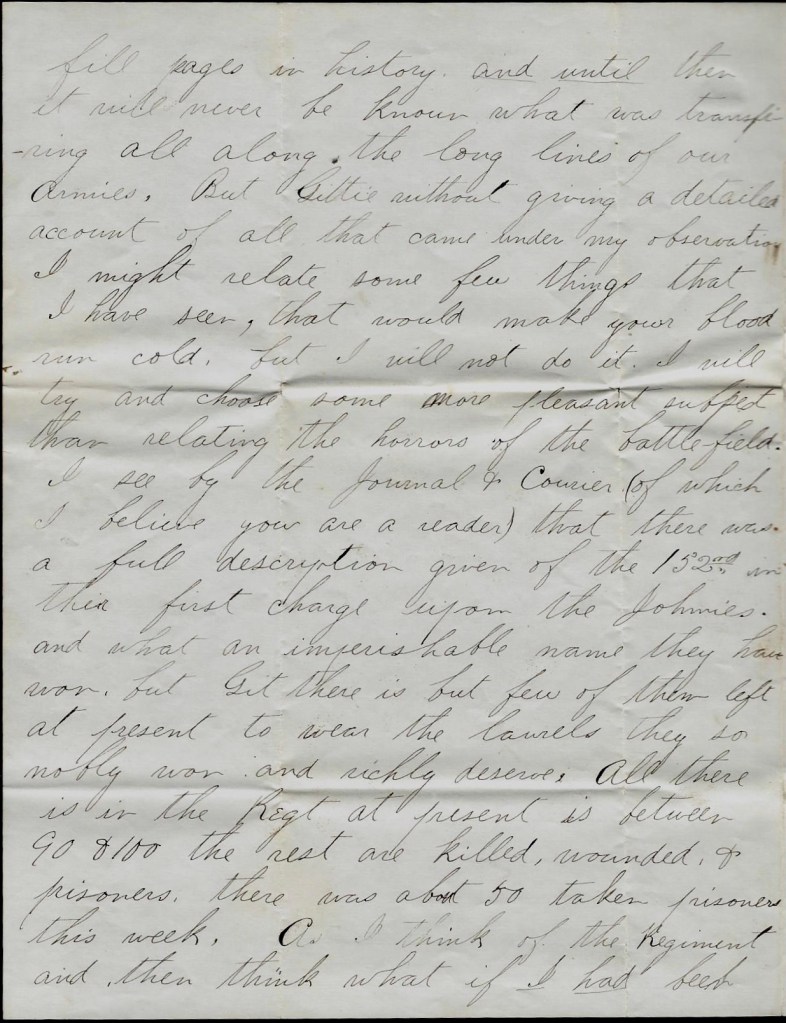 fill pages in history. and until then
it will never be known what was transpi-
-ring all along the long lines of our
Armies. But Gittie without giving a detailed
account of all that came under my observation
I might relate some few things that
I have seen, that would make your blood
run cold. but I will not do it. I will
try and choose some more pleasant subject
than relating the horrors of the battle-field.
I see by the Journal & Courier (of which
I believe you are a reader) that there was
a full description given of the 152nd in
their first charge upon the Johnnies.
and what an imperishable name they have
won. but Git there is but few of them left
at present to wear the laurels they so
nobly won and richly deserve. All there
is in the Regt at present is between
90 & 100 the rest are killed, wounded, &
prisoners. there was about 50 taken prisoners
this week. As I think of the Regiment
and then think what if I had been